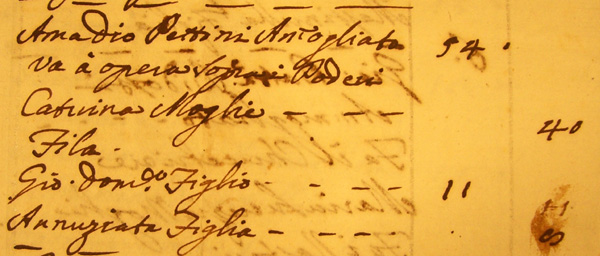 Amadio Pettini Am:ogliato 54.
Va à opera sopra i Poderi
Caterina Moglie - - - 40
Fila.
Gio: Dom:co Figlio - - - 11
Annunziata Figlia - - - - 8